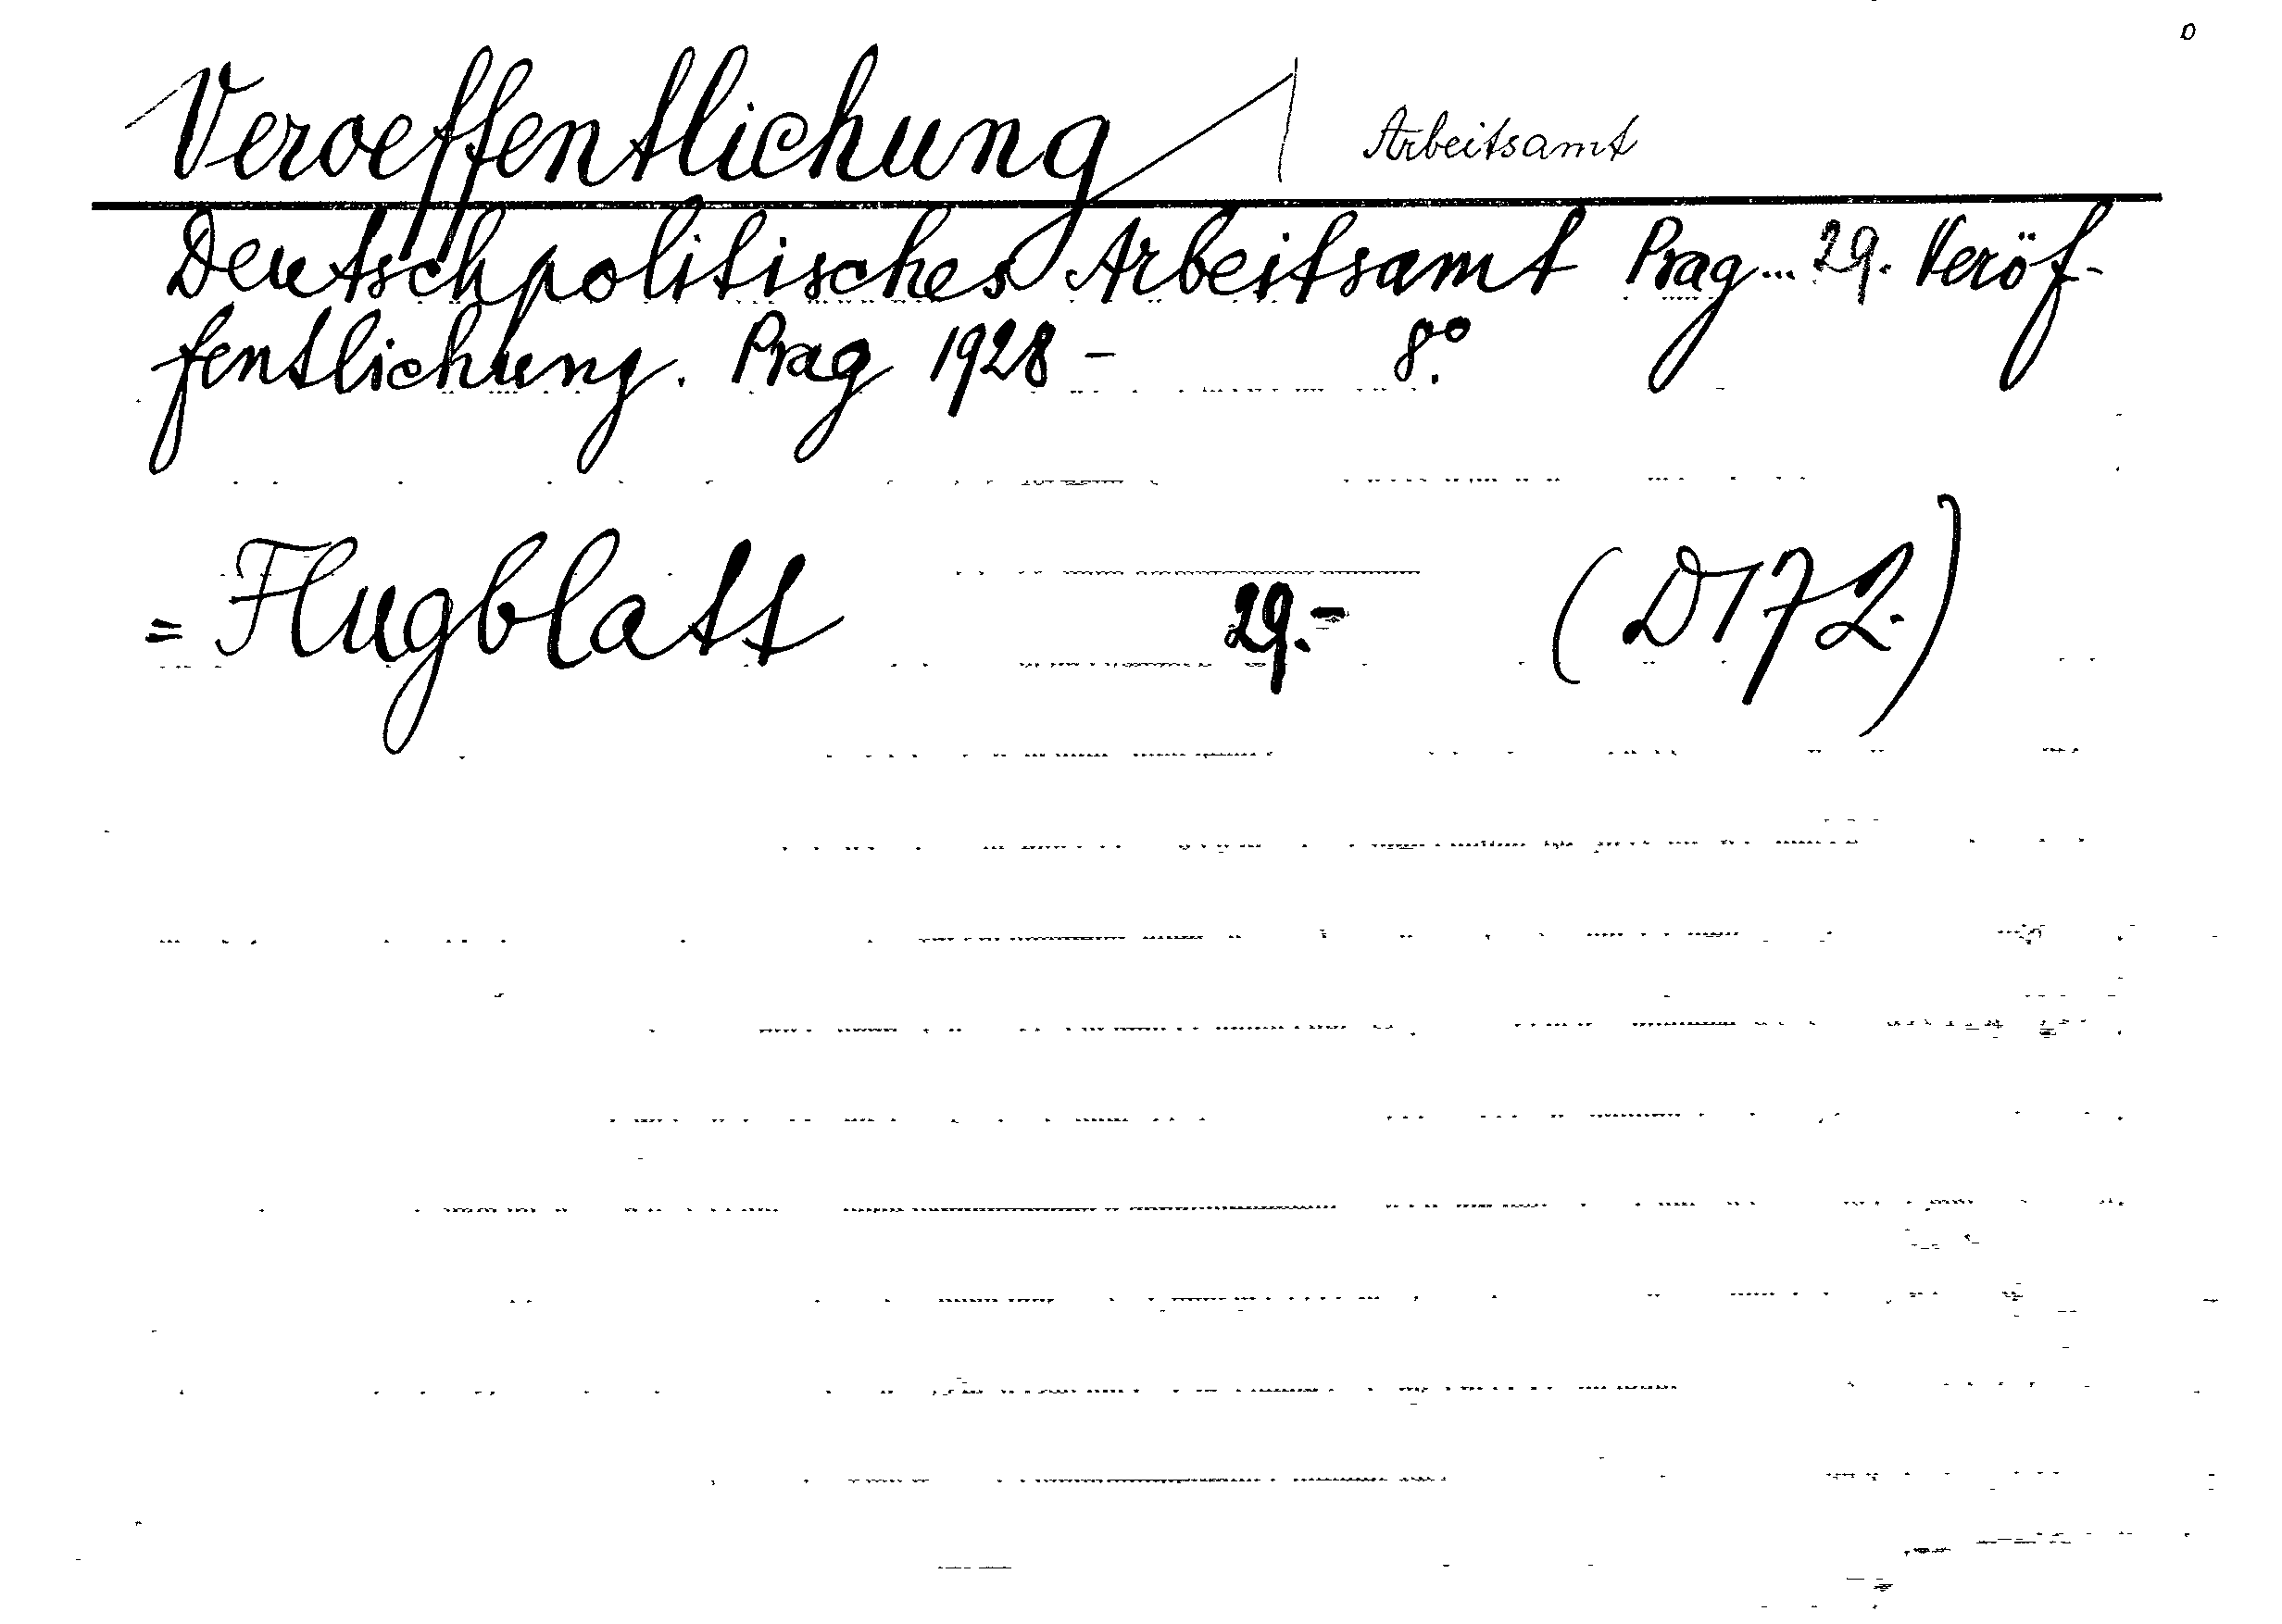 Veroeffentlichung / Arbeitsamt
Deutschpolitisches Arbeitsamt Prag... 29. Veröf-
fentlichung. Prag 1928 – 8°.
= Flugblatt 29.- (D172.)